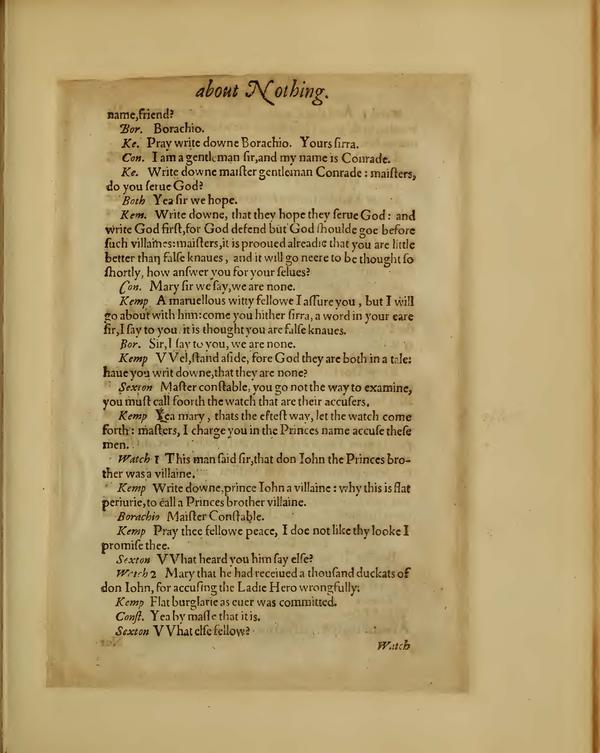 about Nothing.
name,friend?
Bor. Borachio.
Ke. Pray write downe Borachio. Yours sirra.
Con. I am a gentleman sir,and my name is Conrade.
Ke. Write downe maiſter gentleman Conrade : maiſters,
do you ſerue God?
Both Yea ſir we hope.
Kem. Write downe, that they hope they ſerue God : and
write God firſt,for God defend but God ſhoulde goe before
ſuch villaines:maiſters,it is prooued alreadie that you are little
better than falſe knaues, and it will go neere to be thought ſo
ſhortly, how anſwer you for your ſelues?
Con. Mary ſir we ſay,we are none.
Kemp A maruellous witty fellowe I aſſure you, but I will
go about with him:come you hither ſirra, a word in your eare
ſir,I ſay to you it is thought you are falſe knaues.
Bor. Sir,I ſay to you, we are none.
Kemp VVel,ſtand aſide, fore God they are both in a tale:
haue you writ downe,that they are none?
Sexton Maſter conſtable, you go not the way to examine,
you muſt call foorth the watch that are their accuſers.
Kemp Yea mary, thats the efteſt way, let the watch come
forth : maſters, I charge you in the Princes name accuſe theſe
men.
Watch 1 This man ſaid ſir,that don Iohn the Princes bro-
ther was a villaine.
Kemp Write downe,prince Iohn a villaine : why this is flat
periurie,to call a Princes brother villaine.
Borachio Maiſter Conſtable.
Kemp Pray thee fellowe peace, I doe not like thy looke I
promiſe thee.
Sexton VVhat heard you him ſay elſe?
Watch 2 Mary that he had receiued a thouſand duckats of
don Iohn, for accuſing the Ladie Hero wrongfully.
Kemp Flat burglarie as euer was committed.
Conſt. Yea by maſſe that it is.
Sexton VVhat elſe fellow?
Watch